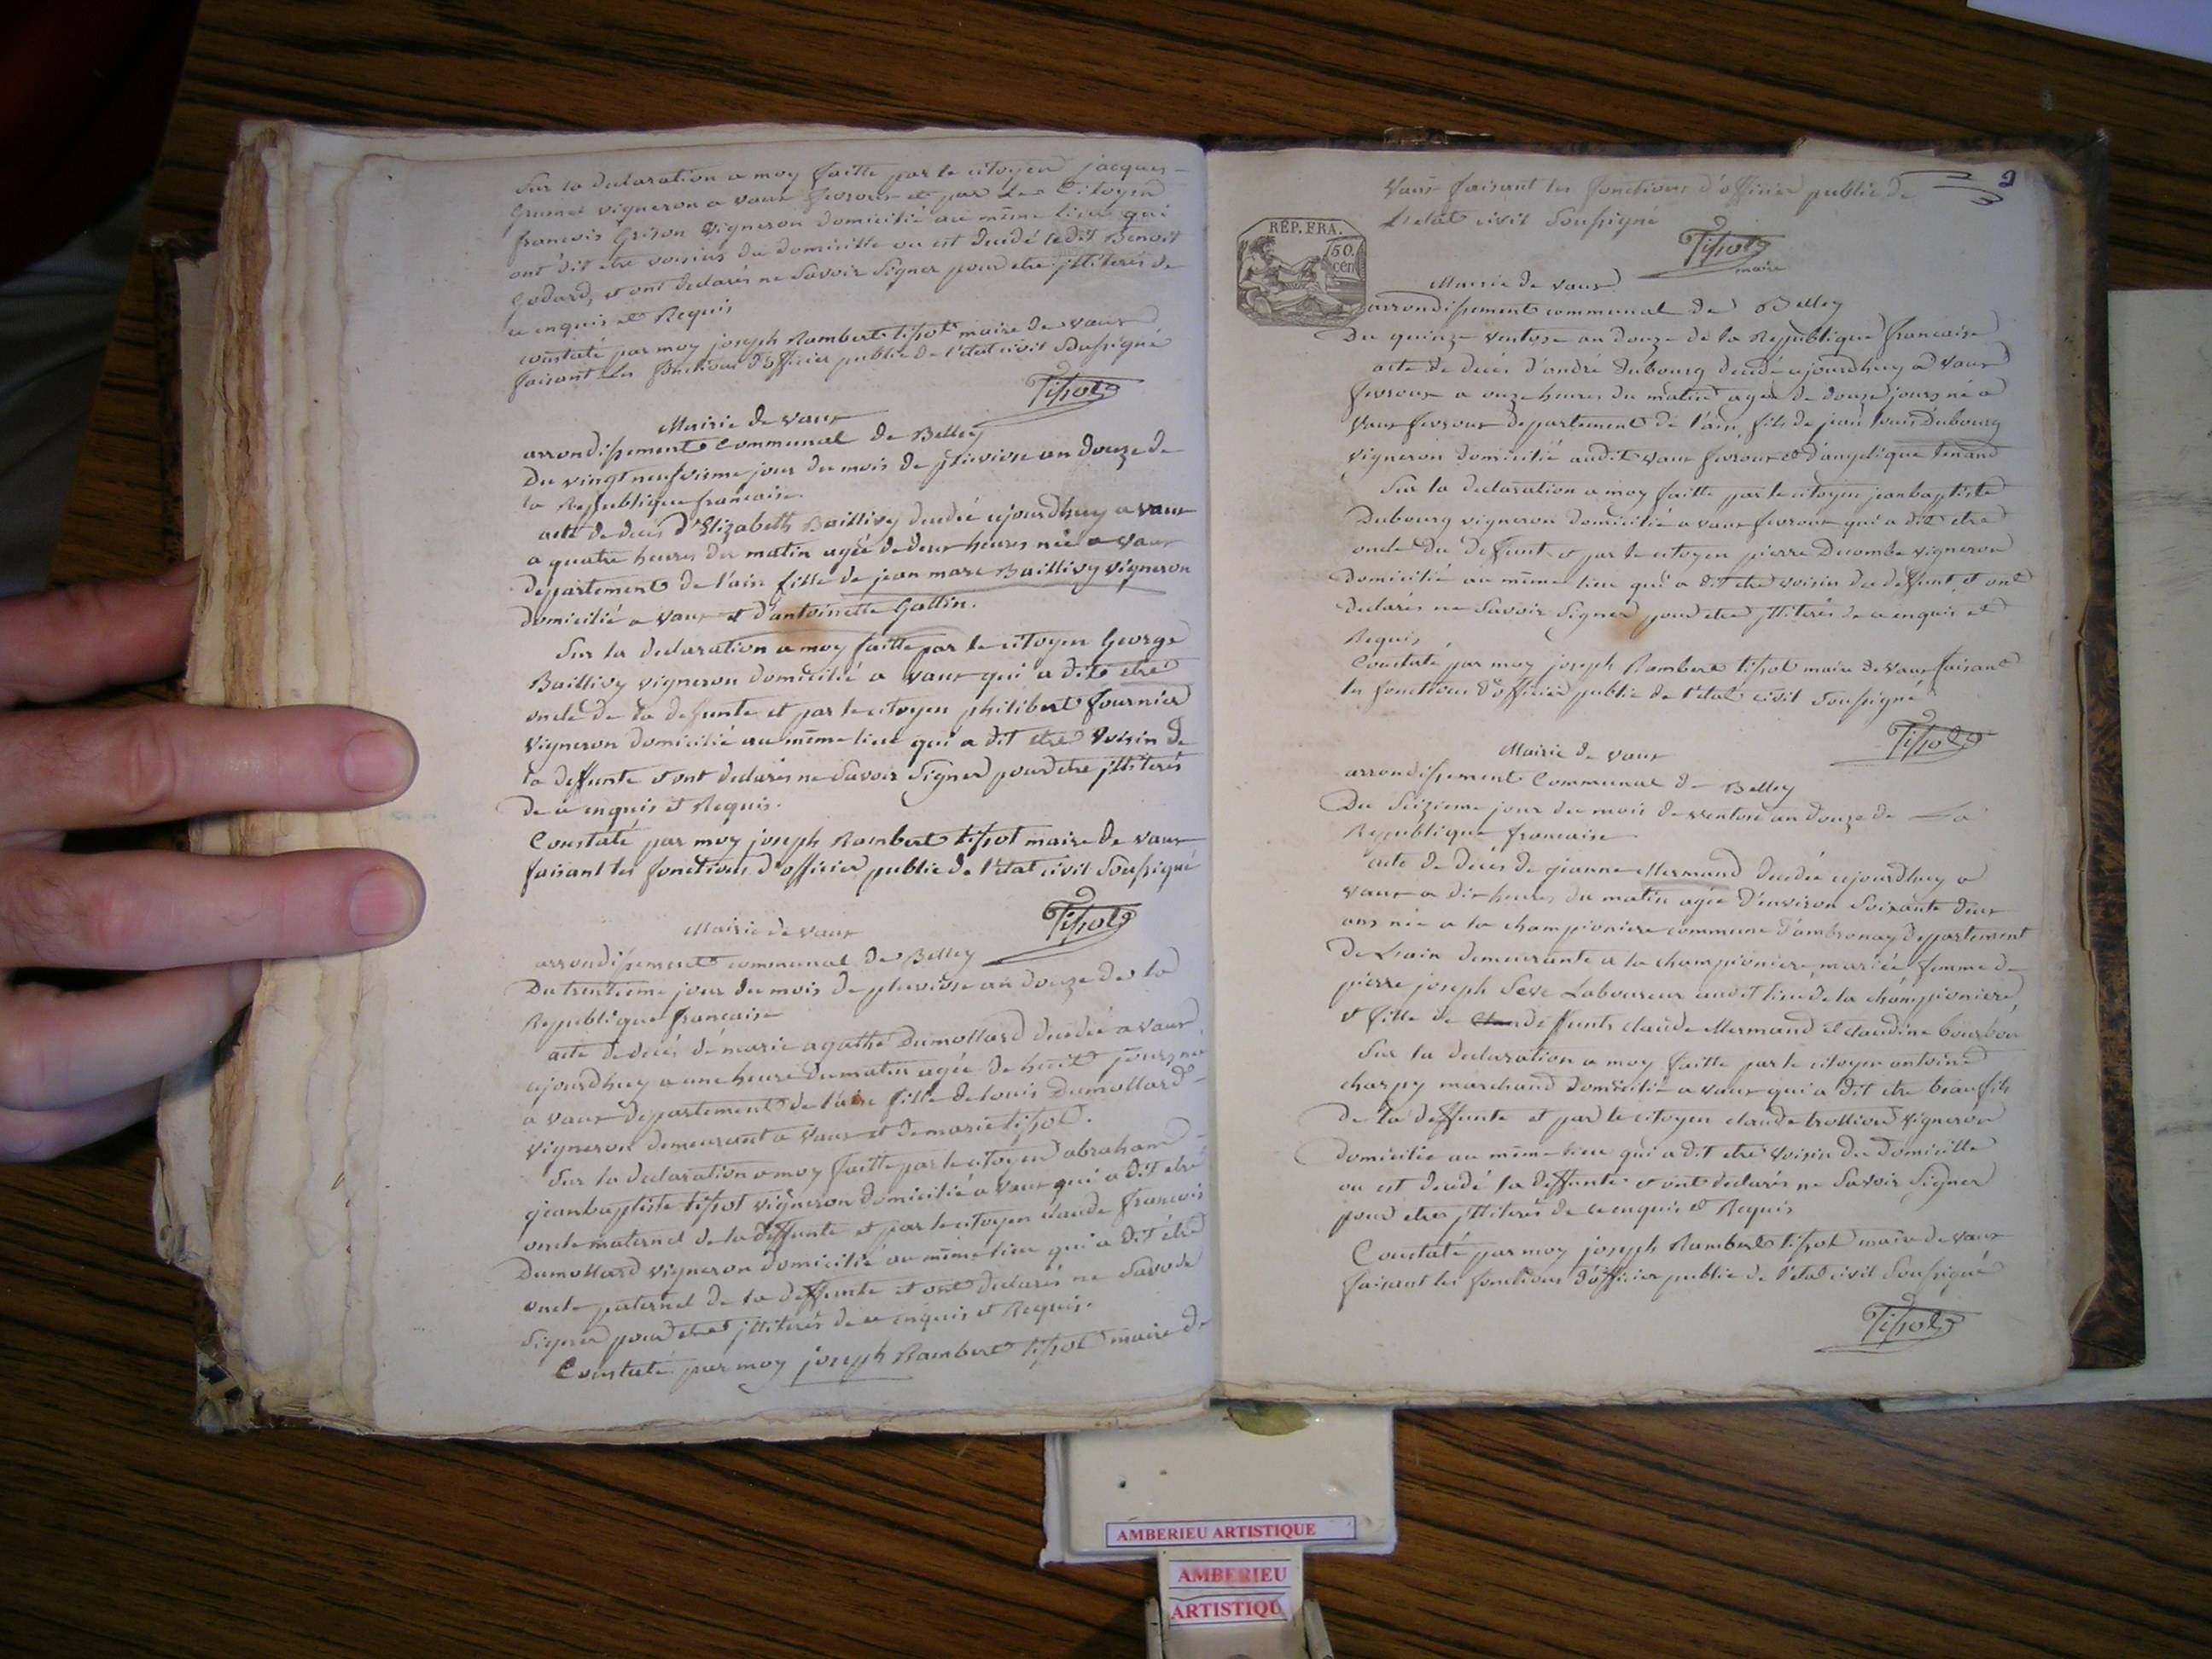 Sur la declaration a moy faitte par le citoyen jacques
Grumet vigneron a vaux fevroux et par le Citoyen
francois Grison vigneron domicilié au même lieu qui
ont dit etre voisins du domicille ou est decedé ledit Benoit
Godard, et ont declarés ne savoir signer pour etre jlliterés de
ce enquis et Requis
constaté par moy joseph Rambert tissot maire de vaux
faisant les fonctions d'officier public de l'état civil soussigné
Tissot
Mairie de vaux
arrondissement Communal de Belley
Du vingt neufvieme jour du mois de pluviose an douze de
la Republique francaise.
acte de deces d'Elizabeth Baillivy decedée ajourdhuy a vaux
a quatre heures du matin agée de deux heures née a vaux
departement de l'ain fille de jean marc Baillivy vigneron
domicilié a vaux et d'antoinette Gallin.
Sur la declaration a moy faitte par le citoyen George
Baillivy vigneron domicilié a vaux qui a dit etre
oncle de la defunte et par le citoyen philibert fournier
vigneron domicilié au même lieu qui a dit etre voisin de
la deffunte et ont declarés ne savoir signer pour etre jlliterés
de ce enquis et Requis.
Constaté par moy joseph Rambert tissot maire de vaux
faisant les fonctions d'officier public de l'état civil soussigné
Tissot
Mairie de vaux
arrondissement communal de Belley
Du trentieme jour du mois de pluviose an douze de la
Republique francaise
acte de decés de marie agathe Dumollard decedée a vaux
ajourdhuy a une heure du matin agée de huit jours née
a vaux departement de l'ain fille de louis Dumollard
vigneron demeurant a vaux et de marie tissot.
Sur la declaration a moy faitte par le citoyen abraham
jeanbaptiste tissot vigneron domicilié a vaux qui a dit etre
oncle maternel de la deffunte et par le citoyen claude francois
Dumollard vigneron domicilié au même lieu qui a dit etre
oncle paternel de la deffunte et ont declarés ne savoir
signer pour etre jlliterés de ce enquis et Requis.
Constaté par moy joseph Rambert tissot maire de
2
vaux faisant les fonctions d'officier public de
L'etat civil soussigné
Tissot
maire
RÉP. FRA.
50.
cen
Mairie de vaux
arrondissement communal de Belley
Du quinze ventose an douze de la Republique francaise
acte de decés d'andré Dubourg decedé ajourdhuy a vaux
fevroux a onze heures du matin agé de douze jours né a
vaux fevroux departement de l'ain fils de jean louis Dubourg
vigneron domicilié audit vaux fevroux et d'angelique tenand
Sur la declaration a moy faitte par le citoyen jeanbaptiste
Dubourg vigneron domicilié a vaux fevroux qui a dit etre
oncle du deffunt et par le citoyen pierre Decombe vigneron
domicilié au même lieu qui a dit etre voisin du defunt, et ont
declarés ne savoir signer pour etre jlliterés de ce enquis et
Requis
Constaté par moy joseph Rambert tissot maire de vaux faisant
les fonctions d'officier public de l'état civil soussigné
Tissot
Mairie de vaux
arrondissement Communal de Belley
Du seizieme jour du mois de ventose an douze de la
Republique francaise
acte de decés de jeanne Mermand decedée ajourdhuy a
vaux a dix heures du matin agée d'environ soixante deux
ans née a la championiere commune d'ambronay departement
de L'ain demeurante a la championiere, mariée femme de
pierre joseph Seve Laboureur audit lieu de la championiere
et fille de deffunts claude Mermand et claudine bourbon
Sur la declaration a moy faitte par le citoyen antoine
charpy marchand domicilié a vaux qui a dit etre beaufils
de la deffunte et par le citoyen claude trolliout vigneron
domicilié au même lieu qui a dit etre voisin du domicille
ou est decedé la deffunte et ont declarés ne savoir signer
pour etre jlliterés de ce enquis et Requis
Constaté par moy joseph Rambert tissot maire de vaux
faisant les fonctions d'officier public de l'état civil soussigné
Tissot
AMBERIEU ARTISTIQUE
AMBERIEU
ARTISTIQU